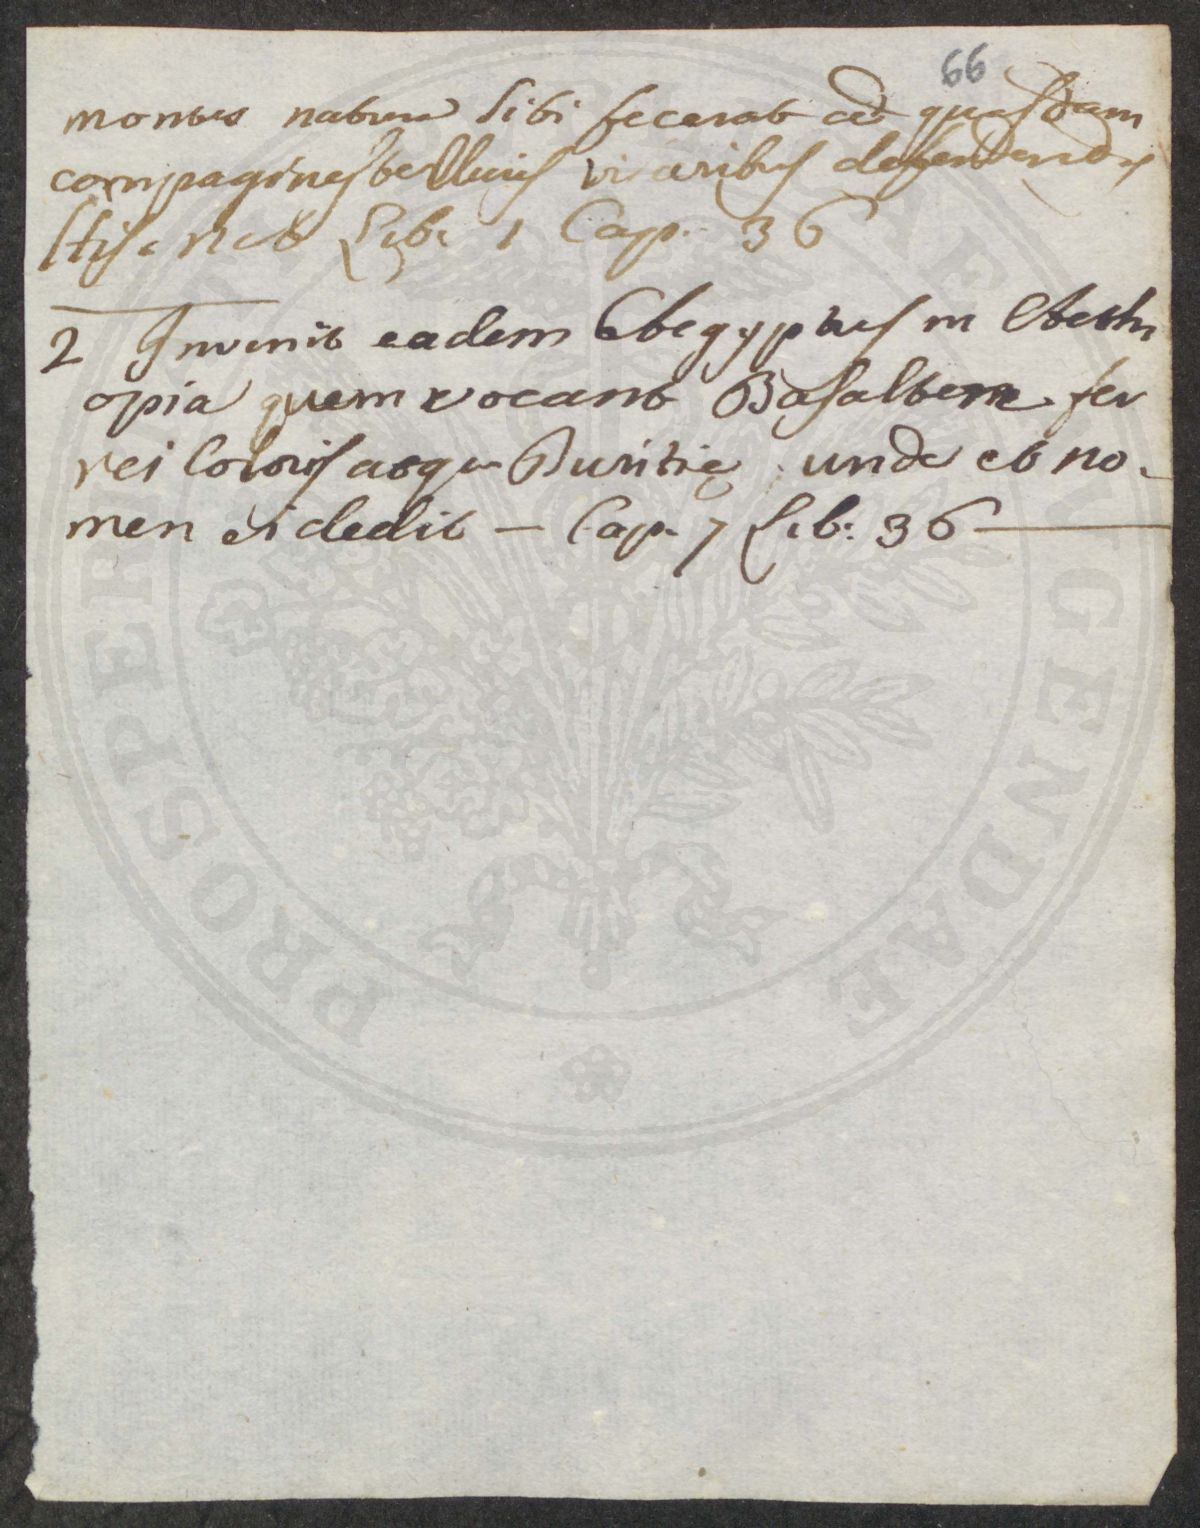 66
montes natura sibi fecerat ad quasdam
compagines telluris visceribus defendendis
Nat Lib. 1 Cap. 36
2 Invenit eadem Aegyptus in Aethi
opia quem vocant Basaltem fer
rei Coloris atque Duritię unde et no-
men ei dedit — Cap. 7 Lib: 36 —
PROSPERITATI PUBLICAE AUGENDAE